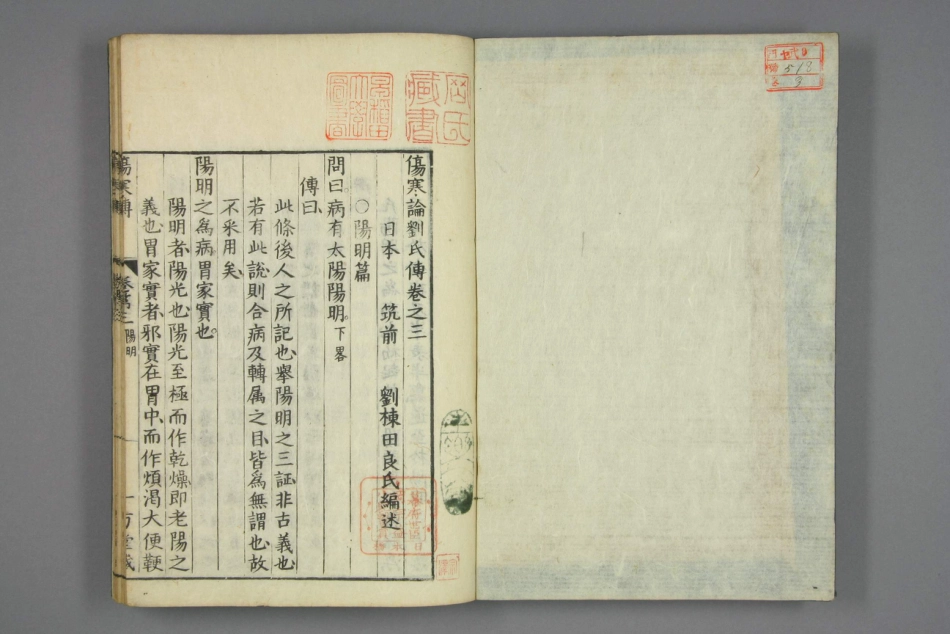 傷寒論劉氏傳卷之三
日本 筑前 劉棟田良氏編述
○陽明篇
問曰、病有太陽陽明。下畧
傳曰、
此條後人之所記也、擧陽明之三証非古義也、
若有此說則合病及轉属之目、皆爲無謂也、故
不采用矣、
陽明之爲病胃家實也。
陽明者、陽光也、陽光至極而作乾燥即老陽之
義也、胃家實者、邪實在胃中、而作煩渴大便鞕
傷寒傳
陽明
岡氏
藏書
518